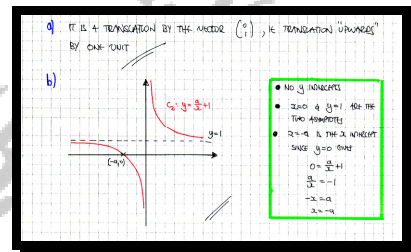 a) IT IS A TRANSLATION BY THE VECTOR (0 1), IE TRANSLATION "UPWARDS"
BY ONE UNIT
b)
C₂: y = a/x + 1
y=1
(-a,0)
• NO y INTERCEPTS
• x=0 & y=1 ARE THE
TWO ASYMPTOTES
• x=-a IS THE x INTERCEPT
SINCE y=0 GIVES
0 = a/x + 1
a/x = -1
-x = a
x = -a